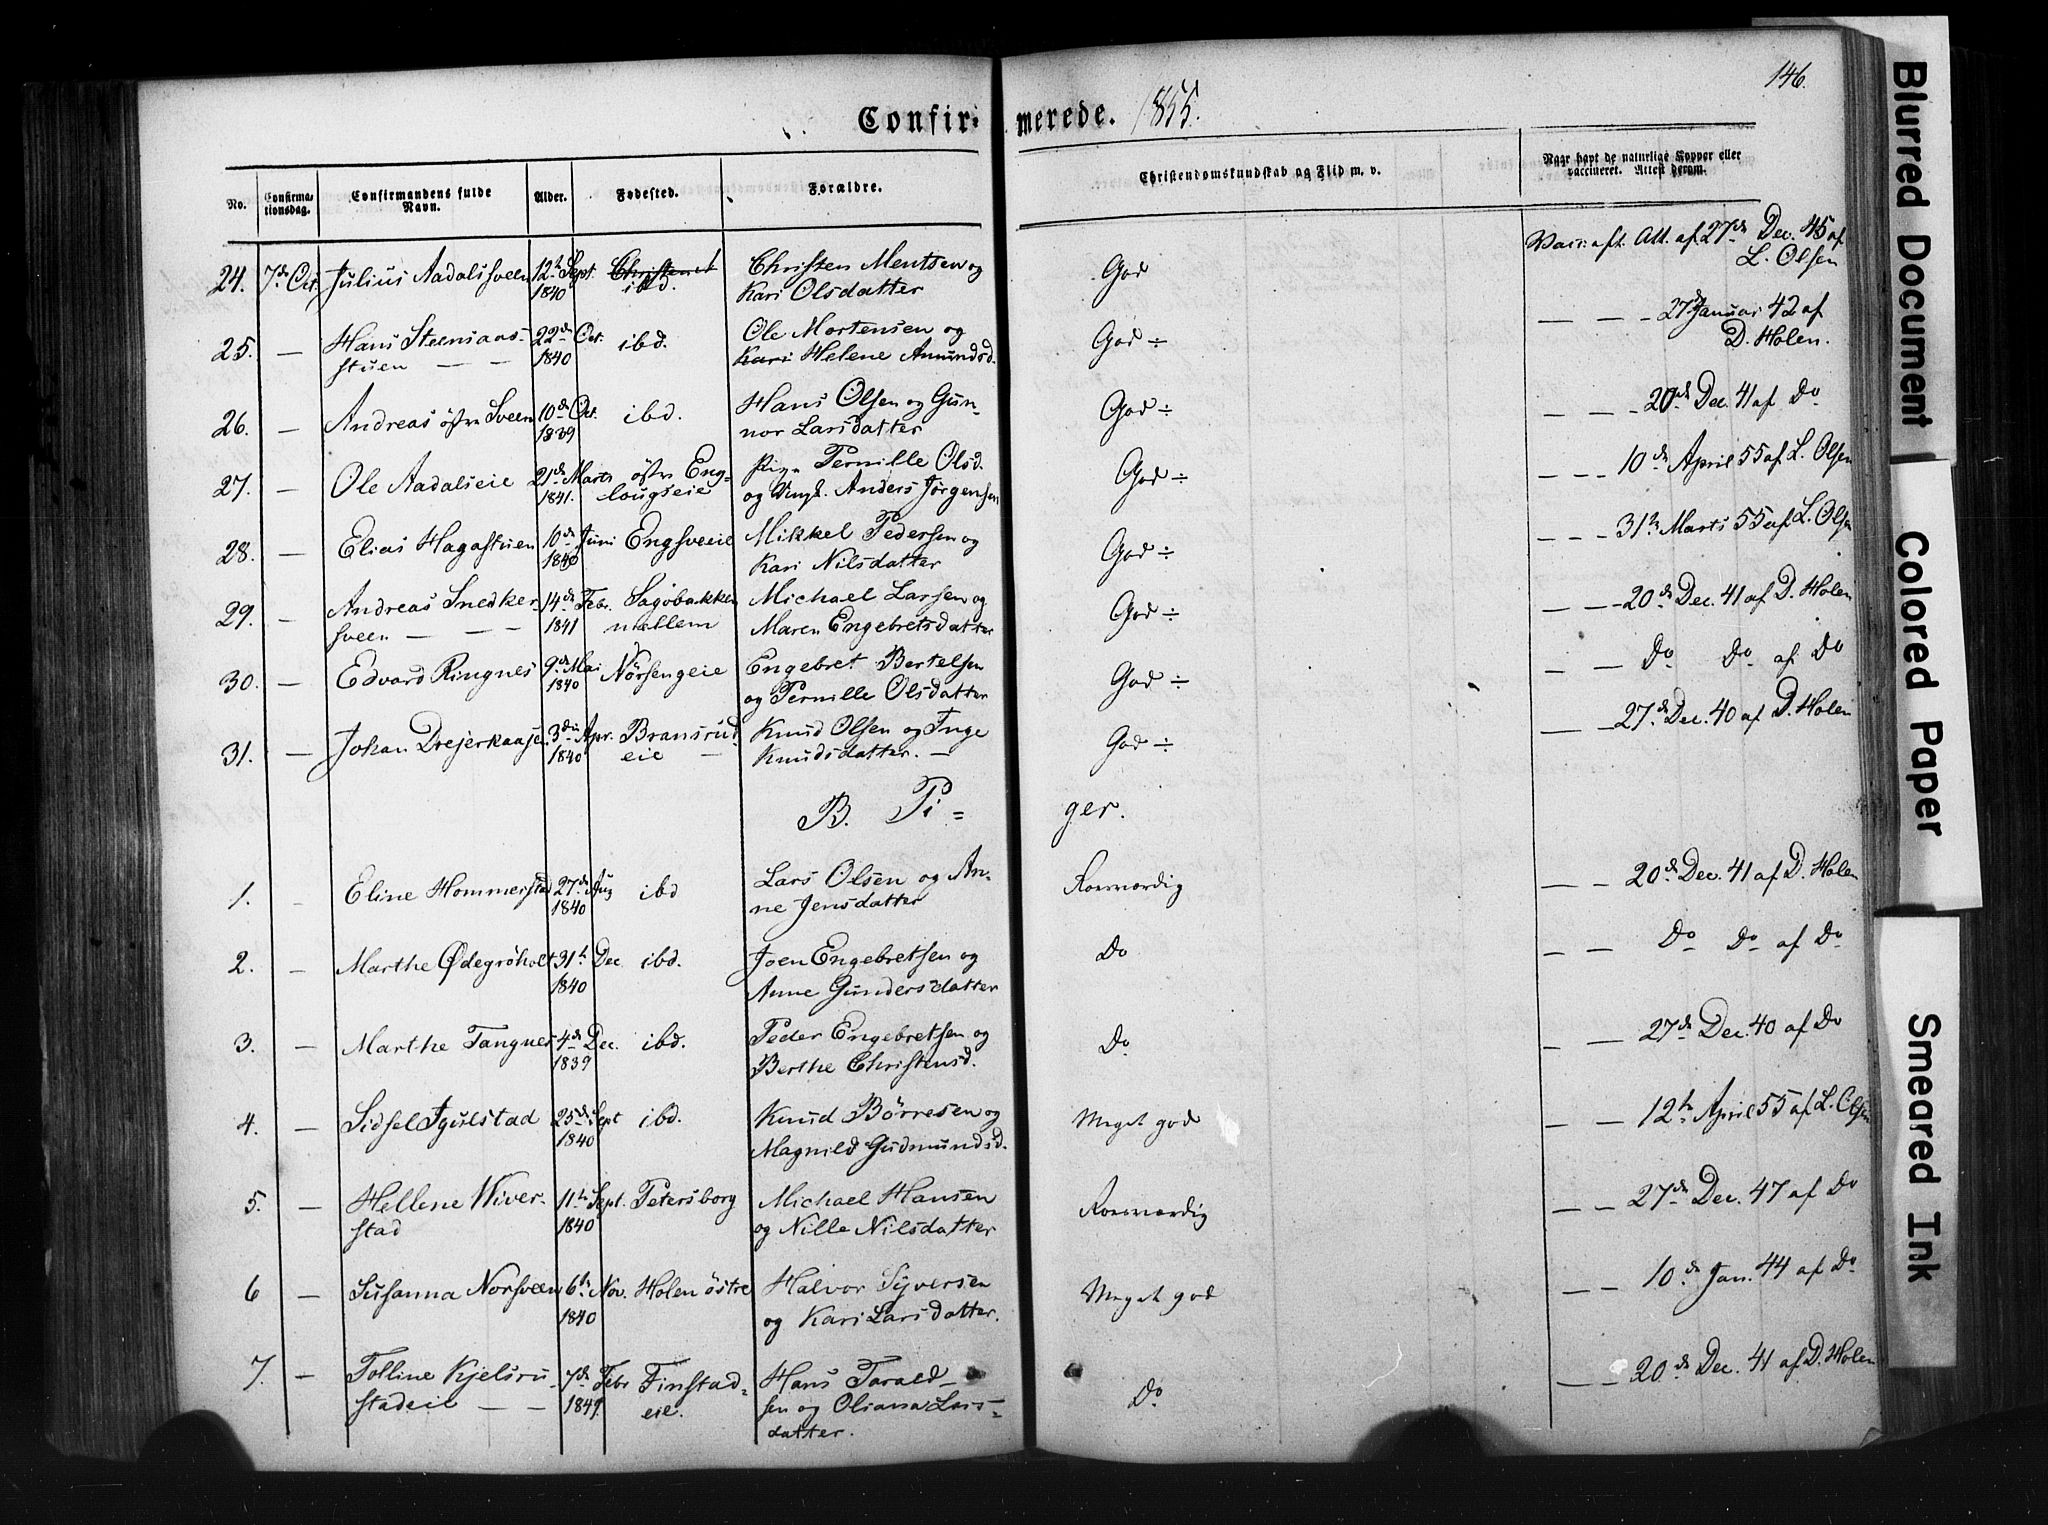 146.
Confirmerede. 1855.
No. Confirmationsdag. Confirmandens fulde Navn. Alder. Fødested. Forældre. Christendomskundskab og Flid m. v. Naar havt de naturlige Kopper eller vaccineret. Attest derom.
24. 7de Oct. Julius Aadalssveen 12te Sept. 1840 Christen A ibd. Christen Mentsen og Kari Olsdatter God Vacc. aft. Att. af 27de Dec. 45 af L. Olsen
25. — Hans Steensaasstuen — — 22de Oct. 1840 ibd. Ole Mortensen og Kari Helene Amundsd. God ÷ — — — 27de Januar 42 af D. Holen.
26. — Andreas østre Sveen 10de Oct. 1839 ibd. Hans Olsen og Gunnor Larsdatter God ÷ — — — 20de Dec. 41 af Do
27. — Ole Aadalseie 21de Marts 1841. østre Englaugseie Pige Pernille Olsd. og Ungk. Anders Jørgensen God ÷ — — — 10de April 55 af L. Olsen
28. — Elias Hagastuen 10de Juni 1840 Engsveeie Mikkel Pedersen og Kari Nilsdatter God ÷ — — — 31te Marts 55 af L. Olsen
29. — Andreas Snedkersveen — — — 14de Febr. 1841 Sagbakken mellem Michael Larsen og Maren Engebretsdatter God ÷ — — — 20de Dec. 41 af D. Holen
30. — Edvard Ringnes 9de Mai 1840 Nørsengeie Engebret Bertelsen og Pernille Olsdatter God ÷ — — Do Do af Do
31. — Johan Drejerkaasen 3die Apr. 1840 Bransrudeie — Knud Olsen og Inge Knudsdatter. — God ÷ — 27de Dec. 40 af D. Holen
B. Piger.
1. - Eline Hommerstad 27de Aug 1840 ibd Lars Olsen og Anne Jensdatter Roesværdig — — 20de Dec. 41 af D. Holen
2. — Marthe Ødegrøholt 31te Dec 1840 ibd. Joen Engebretsen og Anne Gundersdatter Do — — Do Do af Do
3. — Marthe Tangnes 4de Dec. 1839 ibd. Peder Engebretsen og Berthe Christensd. Do — — 27de Dec. 40 af Do
4. — Sidsel Igulstad 25de Sept 1840 ibd. Knud Børresen og Magnild Gudmundsd. Meget god — — 12te April 55 af L. Olsen
5. — Hellene Wiverstad 11te Sept. 1840 Petersborg Michael Hansen og Nille Nilsdatter Roesværdig — — 27de Dec. 47 af Do
6 — Susanna Norsveen 6te Nov. 1840 Holen østre Halvor Syversen og Kari Larsdatter. Meget god — — 10de Jan. 44 af Do
7. — Tolline Kjelsrustadeie — — 7de Febr 1841. Finstadeie. Hans Taraldsen og Oliana Larsdatter. Do — — 20de Dec. 41 af D. Holen
Blurred Document
Colored Paper
Smeared Ink